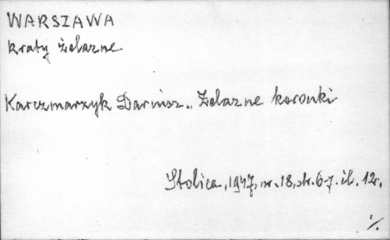 WARSZAWA
kraty żelazne
Karczmarzyk Dariusz.. Żelazne koronki
Stolica, 1947, nr. 18, str. 6-7. il. 12r.